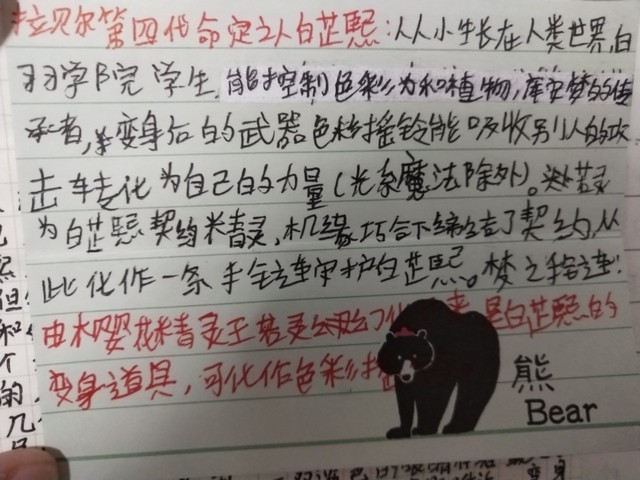 拉贝尔第四代命定之人白芷熙:从小生长在人类世界,白
羽学院学生,能控制色彩力和植物,库安梦的传
承者,变身后的武器色彩摇铃能吸收别人的攻
击转化为自己的力量(光系魔法除外)。若灵
为白芷熙契约精灵,机缘巧合下缔结了契约,从
此化作一条手链守护白芷熙。梦之手链!
由木婴花精灵王若灵幻化 是白芷熙的
变身道具,可化作色彩
熊
Bear